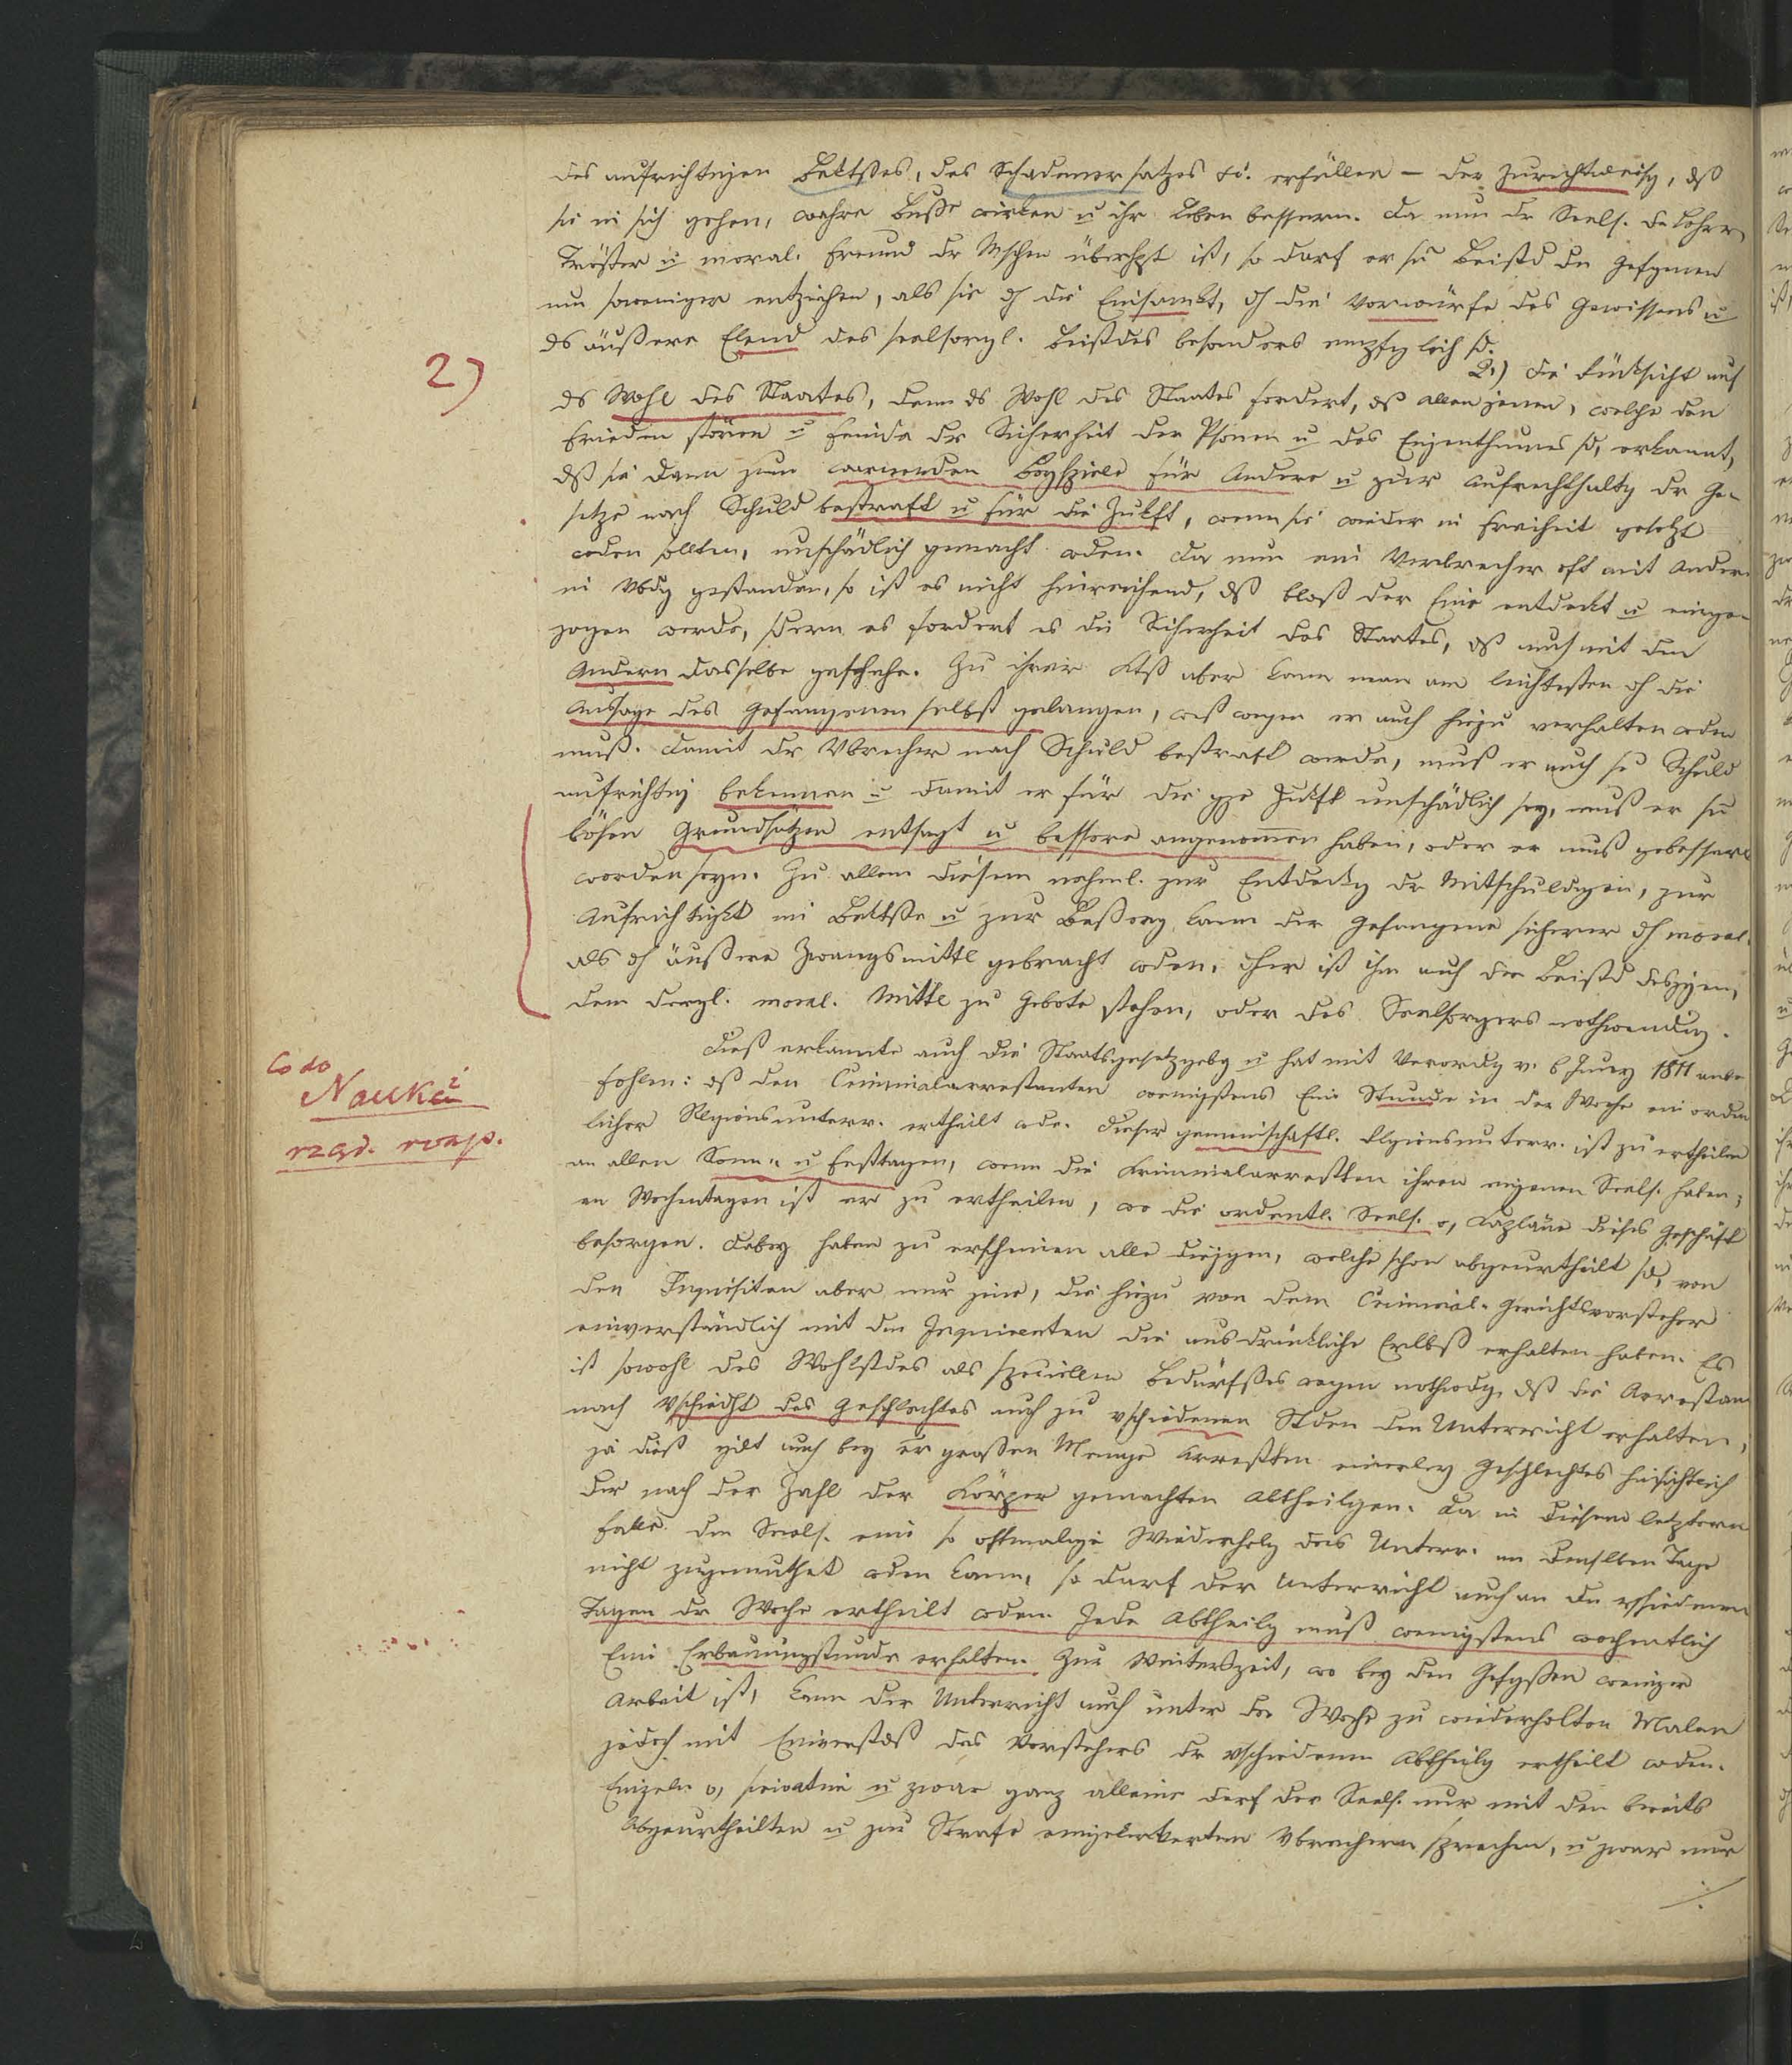 des aufrichtigen Bektßes, des Schadenersatzes &c. erfüllen – der Zurechtweisg, dß
sie in sich gehen, wahre Buße wirken u ihr Leben bessern. Da nun dr Seels. dr Lehrer,
Tröster u moral. Freund dr Mschen überhpt ist, so darf er sn Beistd dn Gefgenen
um soweniger entziehen, als sie dch die Einsamkt, dch die Vorwürfe des Gewissens u
ds äußere Elend des seelsorgl. Beistdes besonders empfglich sd.
2.) Die Rücksicht auf
2)
ds Wohl des Staates, denn ds Wohl des Staates fordert, dß allen jenen, welche den
Frieden stören u Feinde dr Sicherheit der Psonen u des Eigenthumes sd, erkannt,
dß sie dann zum warnenden Beyspiele für Andere u zur Aufrechthaltg dr Ge-
setze nach Schuld bestraft u für die Zukft, wenn sie wieder in Freiheit gesetzt
wden sollten, unschädlich gemacht wden. Da nun ein Verbrecher oft mit Andern
in Vbdg gestanden, so ist es nicht hinreichend, dß bloß der Eine entdeckt u einge-
zogen werde, sdern es fordert es die Sicherheit des Staates, dß auch mit den
Andern dasselbe geschehe. Zu ihrer Ktß aber kann man am leichtesten dch die
Aussage des Gefangenen selbst gelangen, weßwegen er auch hiezu verhalten wden
muß. Damit dr Vbrecher nach Schuld bestraft werde, muß er auch se Schuld
aufrichtig bekennen u damit er für die gze Zukft unschädlich sey, muß er sn
bösen Grundsätzen entsagt u bessere angenommen haben, oder er muß gebessert
worden seyn. Zu allem diesem nahml. zur Entdeckg dr Mitschuldigen, zur
Aufrichtigkt im Bektße u zur Beßerg kann der Gefangene sicherer dch moral.
als dch äußere Zwangsmittl gebracht wden, dher ist ihm auch der Beistd desjgen,
dem dergl. moral. Mittl zu Gebote stehen, oder des Seelsorgers nothwendig.
Dieß erkannte auch die Staatsgesetzgebg u hat mit Verordg v. 6 Juny 1811 anbe-
Co do
fohlen: dß den Criminalarrestanten wenigstens Eine Stunde in der Woche ein ordent-
Nauki
licher Religionsunterr. ertheilt wde. Dieser gemeinschaftl. Rlgionsunterr. ist zu ertheilen
rząd. rozp.
an allen Sonn- u Festtagen, wenn die Kriminalarrestten ihren eigenen Seels. haben;
an Wochentagen ist er zu ertheilen, wo die ordentl. Seels. o, Kapläne dieses Geschäft
besorgen. Dabey haben zu erscheinen alle diejgen, welche schon abgeurtheilt sd, von
den Inquisiten aber nur jene, die hiezu von dem Criminal-Gerichtsvorsteher
einverständlich mit dn Inquirenten die ausdrückliche Erlbß erhalten haben. Es
ist sowohl des Wohlstdes als speciellen Bedürfßes wegen nothwdg, dß die Arrestan
nach Vschiedht des Geschlechtes auch zu vschiedenen Stden den Unterricht erhalten,
ja dieß gilt auch bey er großen Menge Arrestten einerley Geschlechtes hinsichtlich
der nach der Zahl der Körper gemachten Abtheilgen. Da in diesem letztern
Falle dem Seels. eine so oftmalige Wiederholg des Unterr. an demselben Tage
nicht zugemuthet wden kann, so darf der Unterricht auch an dn vschiedenen
Tagen dr Woche ertheilt wden. Jede Abtheilg muß wenigstens wochentlich
Eine Erbauungsstunde erhalten. Zur Winterszeit, wo bey den Gefgßen weniger
Arbeit ist, kann der Unterricht auch unter der Woche zu wiederholten Malen
jedoch mit Einverstdß des Vorstehers dr vschiedenen Abtheilg ertheilt wden.
Einzeln o, privatim u zwar ganz alleine darf der Seels. nur mit den bereits
Abgeurtheilten u zur Strafe eingekerkerten Vbrechern sprechen, u zwar nur